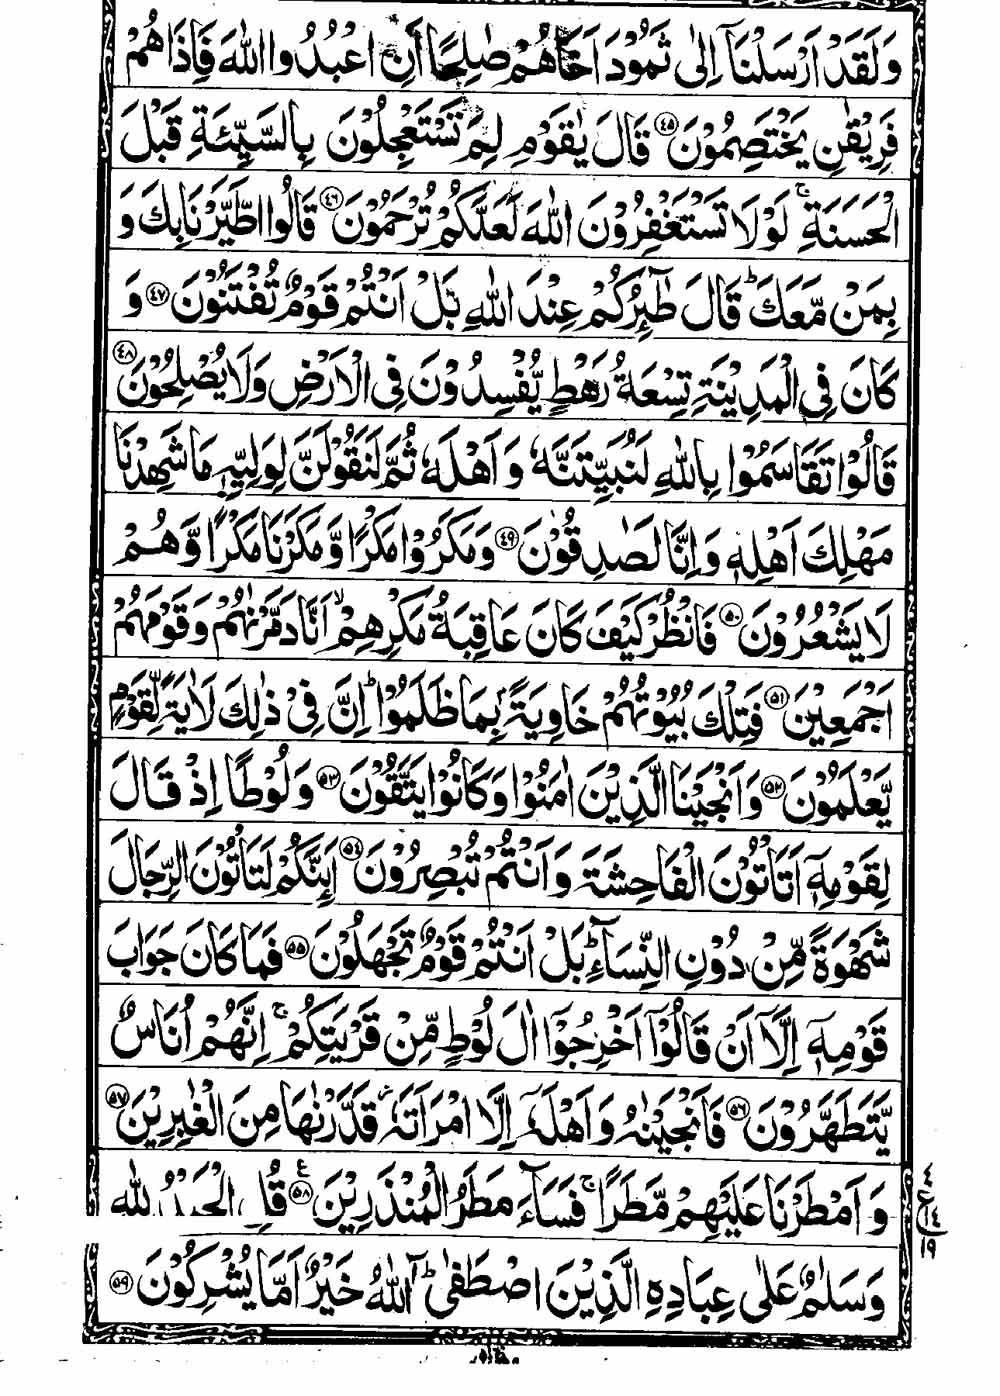 وَلَقَدْ اَرْسَلْنَاۤ اِلٰى ثَمُوْدَ اَخَاهُمْ صٰلِحًا اَنِ اعْبُدُوا اللّٰهَ فَاِذَا هُمْ
فَرِيْقٰنِ يَخْتَصِمُوْنَ ۴۵ قَالَ يٰقَوْمِ لِمَ تَسْتَعْجِلُوْنَ بِالسَّيِّئَةِ قَبْلَ
الْحَسَنَةِ ۚ لَوْلَا تَسْتَغْفِرُوْنَ اللّٰهَ لَعَلَّكُمْ تُرْحَمُوْنَ ۴۶ قَالُوا اطَّيَّرْنَا بِكَ وَ
بِمَنْ مَّعَكَ ؕ قَالَ طٰٓئِرُكُمْ عِنْدَ اللّٰهِ بَلْ اَنْتُمْ قَوْمٌ تُفْتَنُوْنَ ۴۷ وَ
كَانَ فِى الْمَدِيْنَةِ تِسْعَةُ رَهْطٍ يُّفْسِدُوْنَ فِى الْاَرْضِ وَلَا يُصْلِحُوْنَ ۴۸
قَالُوْا تَقَاسَمُوْا بِاللّٰهِ لَنُبَيِّتَنَّهٗ وَاَهْلَهٗ ثُمَّ لَنَقُوْلَنَّ لِوَلِيِّهٖ مَا شَهِدْنَا
مَهْلِكَ اَهْلِهٖ وَاِنَّا لَصٰدِقُوْنَ ۴۹ وَمَكَرُوْا مَكْرًا وَّمَكَرْنَا مَكْرًا وَّهُمْ
لَا يَشْعُرُوْنَ ۵۰ فَانْظُرْ كَيْفَ كَانَ عَاقِبَةُ مَكْرِهِمْ ۙ اَنَّا دَمَّرْنٰهُمْ وَقَوْمَهُمْ
اَجْمَعِيْنَ ۵۱ فَتِلْكَ بُيُوْتُهُمْ خَاوِيَةًۢ بِمَا ظَلَمُوْا ؕ اِنَّ فِىْ ذٰلِكَ لَاٰيَةً لِّقَوْمٍ
يَّعْلَمُوْنَ ۵۲ وَاَنْجَيْنَا الَّذِيْنَ اٰمَنُوْا وَكَانُوْا يَتَّقُوْنَ ۵۳ وَلُوْطًا اِذْ قَالَ
لِقَوْمِهٖۤ اَتَاْتُوْنَ الْفَاحِشَةَ وَاَنْتُمْ تُبْصِرُوْنَ ۵۴ اَئِنَّكُمْ لَتَاْتُوْنَ الرِّجَالَ
شَهْوَةً مِّنْ دُوْنِ النِّسَآءِ ؕ بَلْ اَنْتُمْ قَوْمٌ تَجْهَلُوْنَ ۵۵ فَمَا كَانَ جَوَابَ
قَوْمِهٖۤ اِلَّاۤ اَنْ قَالُوْۤا اَخْرِجُوْۤا اٰلَ لُوْطٍ مِّنْ قَرْيَتِكُمْ ۚ اِنَّهُمْ اُنَاسٌ
يَّتَطَهَّرُوْنَ ۵۶ فَاَنْجَيْنٰهُ وَاَهْلَهٗۤ اِلَّا امْرَاَتَهٗ ؗ قَدَّرْنٰهَا مِنَ الْغٰبِرِيْنَ ۵۷
وَاَمْطَرْنَا عَلَيْهِمْ مَّطَرًا ۚ فَسَآءَ مَطَرُ الْمُنْذَرِيْنَ ۵۸ ع قُلِ الْحَمْدُ لِلّٰهِ
وَسَلٰمٌ عَلٰى عِبَادِهِ الَّذِيْنَ اصْطَفٰى ؕ آٰللّٰهُ خَيْرٌ اَمَّا يُشْرِكُوْنَ ۵۹
ع
۱۴
۱۹